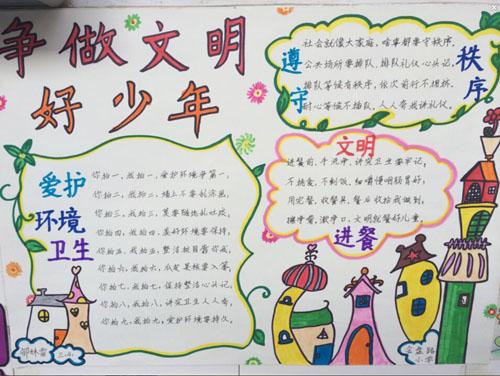 争做文明
好少年
遵守
秩序
社会就像大家庭，啥事都要守秩序。
公共场所要排队，排队礼仪心头记，
排队等候有秩序，依次前行不拥挤。
耐心等候不插队，人人夸我讲礼仪。
爱护
环境
卫生
你拍一，我拍一，爱护环境争第一，
你拍二，我拍二，墙上不要乱涂画，
你拍三，我拍三，果要随扔
你拍四，我拍四，美好环境要保持，
你拍五，我拍五，整洁校园靠你我，
你拍六，我拍六，
你拍七，我拍七，保持整洁心头记，
你拍八，我拍八，讲究卫生人人夸，
你拍九，我拍九，爱护环境要持久。
文明
进餐
进餐前，手洗净，讲究卫生要牢记，
不挑食，不剩饭，细嚼慢咽肠胃好，
用完餐，收餐具，餐桌收拾我做到，
擦嘴，漱漱口，文明就餐好儿童。
三.
小学